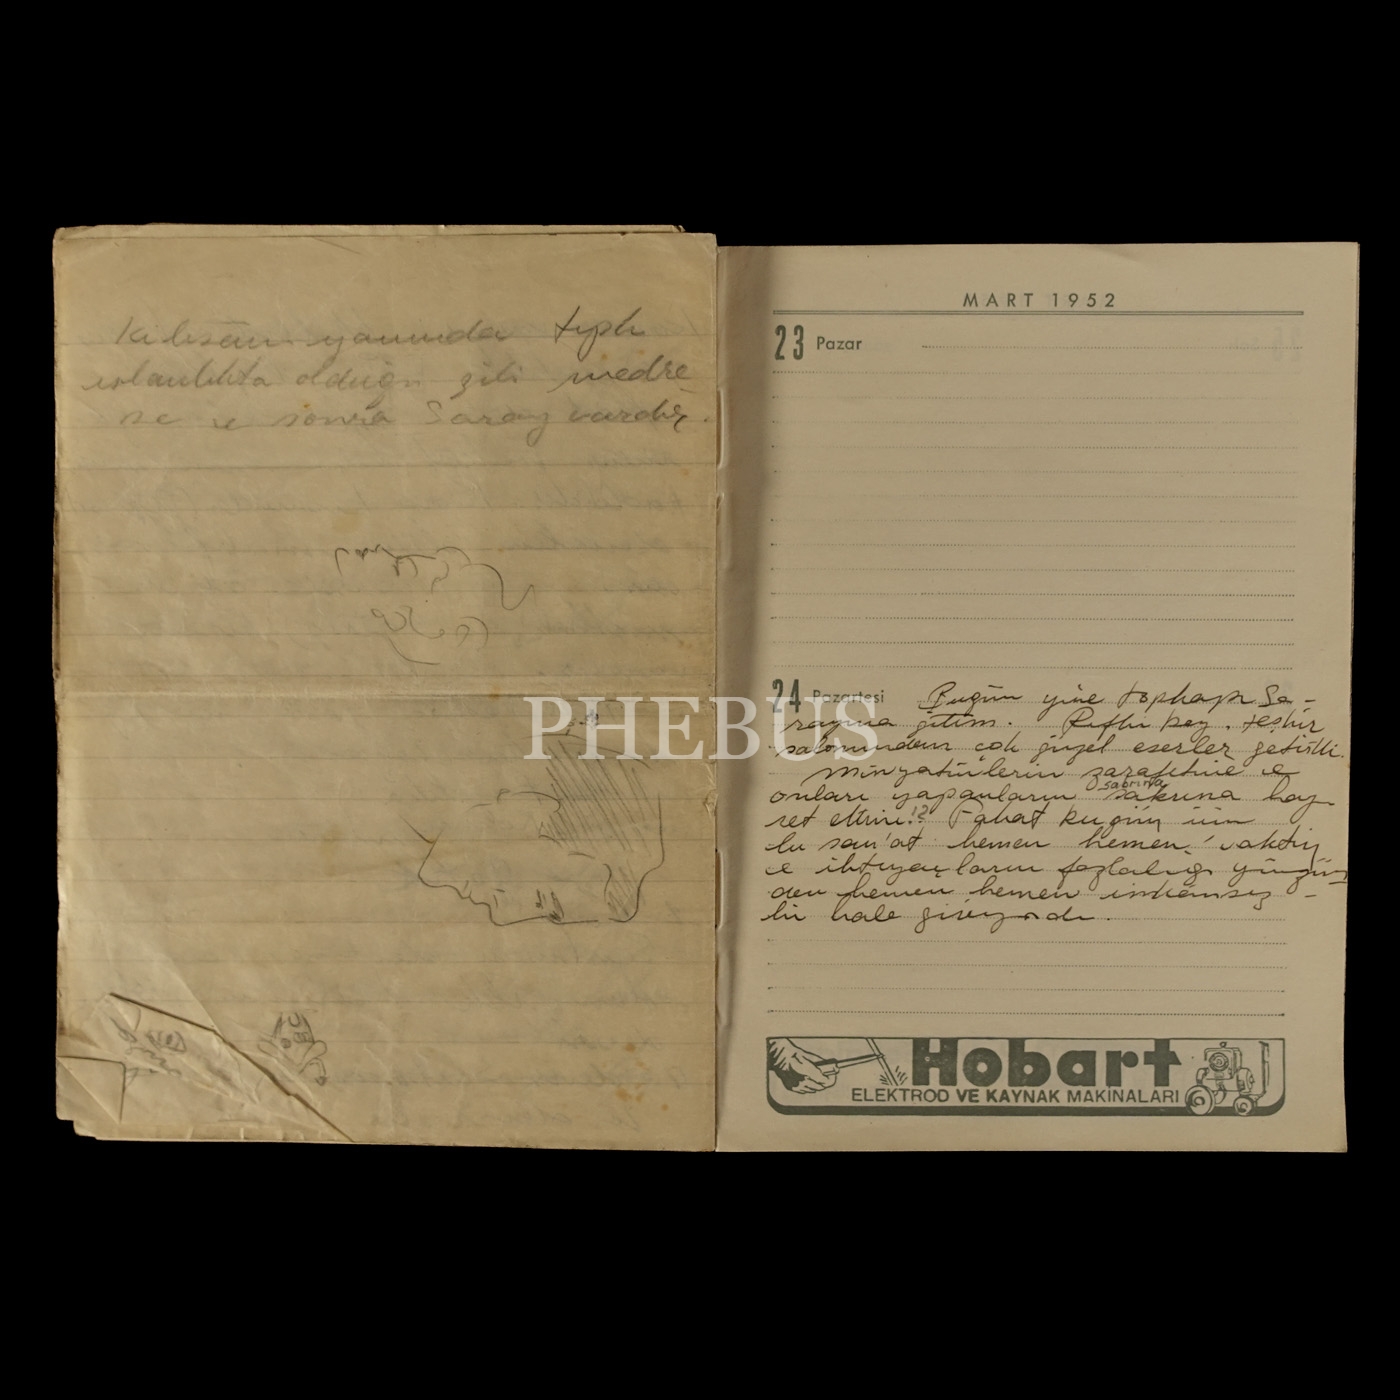 Kilisenin yanında tıpkı
ıslanlıkta olduğu gibi medre
se ve sonra Saray vardır.
PHEBUS
MART 1952
23 Pazar
24 Pazartesi Bugün yine topkapı Sa-
rayına gitim. Rıfkı bey. teşhir
salonundan çok güzel eserler getirtti.
Minyatürlerin zarafetine ve
sabrına
onları yapanların sabrına hay-
ret ettim!? Fakat bugün için
bu san'at hemen hemen, vaktin
ve ihtiyaçların fazlalığı yüzün
den hemen hemen imkansız -
bir hale giriyordu.
Hobart
ELEKTROD VE KAYNAK MAKİNALARI